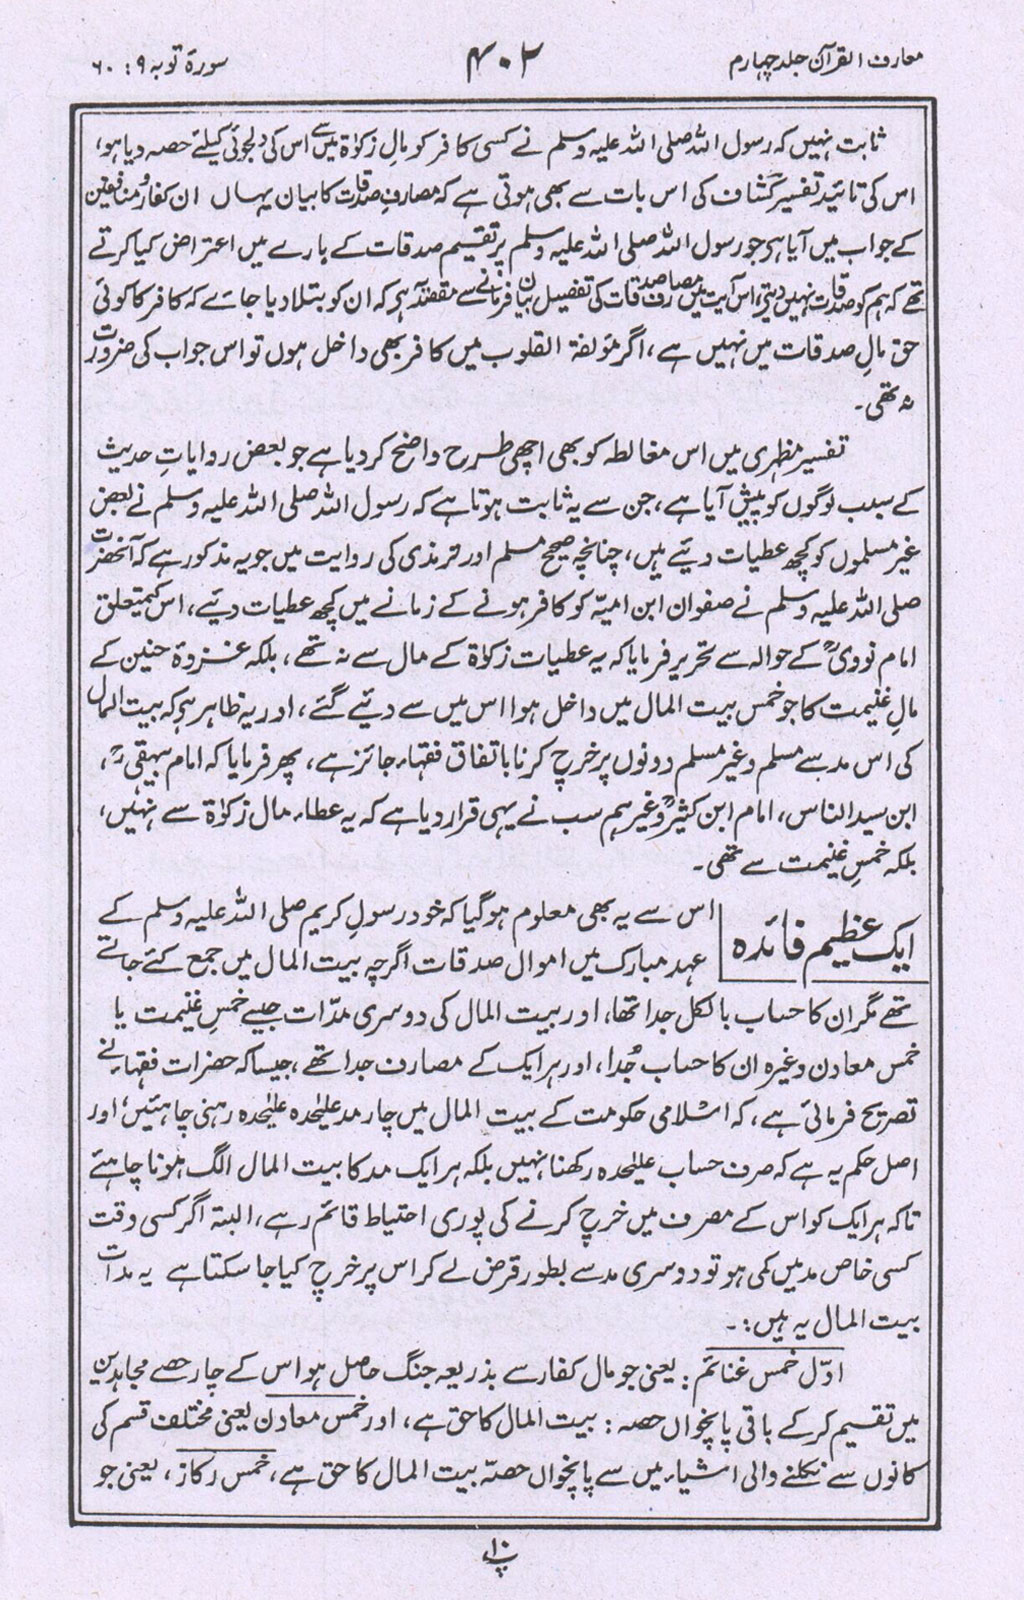 معارف القرآن جلد چہارم
۴۰۲
سورۃ توبہ ۹ : ۶۰
ثابت نہیں کہ رسول اللہ صلی اللہ علیہ وسلم نے کسی کافر کو مالِ زکوٰۃ میں سے اس کی دلجوئی کیلئے حصہ دیا ہو،
اس کی تائید تفسیر کشاف کی اس بات سے بھی ہوتی ہے کہ مصارفِ صدقات کا بیان یہاں ان کفار و منافقین
کے جواب میں آیا ہی جو رسول اللہ صلی اللہ علیہ وسلم پر تقسیم صدقات کے بارے میں اعتراض کیا کرتے
تھے کہ ہم کو صدقات نہیں دیتی، اس آیت میں مصارف صدقات کی تفصیل بیان فرمانے سے مقصد یہ ہی کہ ان کو بتلا دیا جائے کہ کافر کا کوئی
حق مالِ صدقات میں نہیں ہے، اگر مؤلفۃ القلوب میں کافر بھی داخل ہوں تو اس جواب کی ضرورت
نہ تھی۔
تفسیر مظہری میں اس مغالطہ کو بھی اچھی طرح واضح کر دیا ہے جو بعض روایاتِ حدیث
کے سبب لوگوں کو پیش آیا ہے، جن سے یہ ثابت ہوتا ہے کہ رسول اللہ صلی اللہ علیہ وسلم نے بعض
غیر مسلموں کو کچھ عطیات دیئے ہیں، چنانچہ صحیح مسلم اور ترمذی کی روایت میں جو یہ مذکور ہے کہ آنحضرت
صلی اللہ علیہ وسلم نے صفوان ابن امیّہ کو کافر ہونے کے زمانے میں کچھ عطیات دیئے، اس کے متعلق
امام نووی ؒ کے حوالہ سے تحریر فرمایا کہ یہ عطیات زکوٰۃ کے مال سے نہ تھے، بلکہ غزوۂ حنین کے
مالِ غنیمت کا جو خمس بیت المال میں داخل ہوا اس میں سے دیئے گئے، اور یہ ظاہر ہی کہ بیت المال
کی اس مد سے مسلم و غیر مسلم دونوں پر خرچ کرنا باتفاق فقہاء جائز ہے، پھر فرمایا کہ امام بیہقی ؒ،
ابن سید الناس، امام ابن کثیر ؒ وغیرہم سب نے یہی قرار دیا ہے کہ یہ عطاء مال زکوٰۃ سے نہیں،
بلکہ خمسِ غنیمت سے تھی۔
ایک عظیم فائدہ
اس سے یہ بھی معلوم ہو گیا کہ خود رسولِ کریم صلی اللہ علیہ وسلم کے
عہد مبارک میں اموال صدقات اگرچہ بیت المال میں جمع کئے جاتے
تھے مگر ان کا حساب بالکل جدا تھا، اور بیت المال کی دوسری مدّات جیسے خمسِ غنیمت یا
خمس معادن وغیرہ ان کا حساب جُدا، اور ہر ایک کے مصارف جدا تھے، جیسا کہ حضرات فقہاء نے
تصریح فرمائی ہے، کہ اسلامی حکومت کے بیت المال میں چار مد علیٰحدہ علیٰحدہ رہنی چاہئیں، اور
اصل حکم یہ ہے کہ صرف حساب علیٰحدہ رکھنا نہیں بلکہ ہر ایک مد کا بیت المال الگ ہونا چاہئے
تاکہ ہر ایک کو اس کے مصرف میں خرچ کرنے کی پوری احتیاط قائم رہے، البتہ اگر کسی وقت
کسی خاص مد میں کمی ہو تو دوسری مد سے بطور قرض لے کر اس پر خرچ کیا جا سکتا ہے یہ مدات
بیت المال یہ ہیں:۔
اوّل خمس غنائم : یعنی جو مال کفار سے بذریعہ جنگ حاصل ہو اس کے چار حصے مجاہدین
میں تقسیم کر کے باقی پانچواں حصہ : بیت المال کا حق ہے، اور خمس معادن یعنی مختلف قسم کی
کانوں سے نکلنے والی اشیاء میں سے پانچواں حصّہ بیت المال کا حق ہے، خمس رکاز، یعنی جو
پ ۱۰